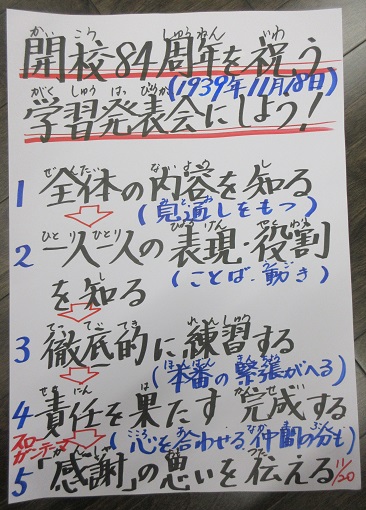 かい こう しゅうねん いわ
開校84周年を祝う
(1939年11月18日)
がく しゅう はっ ぴょう
学習発表会にしよう!
ぜんたい ないよう し
1 全体の内容を知る
(見通しをもつ)
ひとり ひとり ひょう げん やくわり
2 一人一人の表現・役割
(ことば・動き)
を知る
てっ てい てき れんしゅう
3 徹底的に練習する
ほんばん きんちょう
(本番の緊張がへる)
せき にん は かん せい
4 責任を果たす 完成する
スローガンテーマ
こころ あ なかま ぶん
(心を合わせる、仲間の分も)
かんしゃ おも つた
5 「感謝」の思いを伝える 11/20